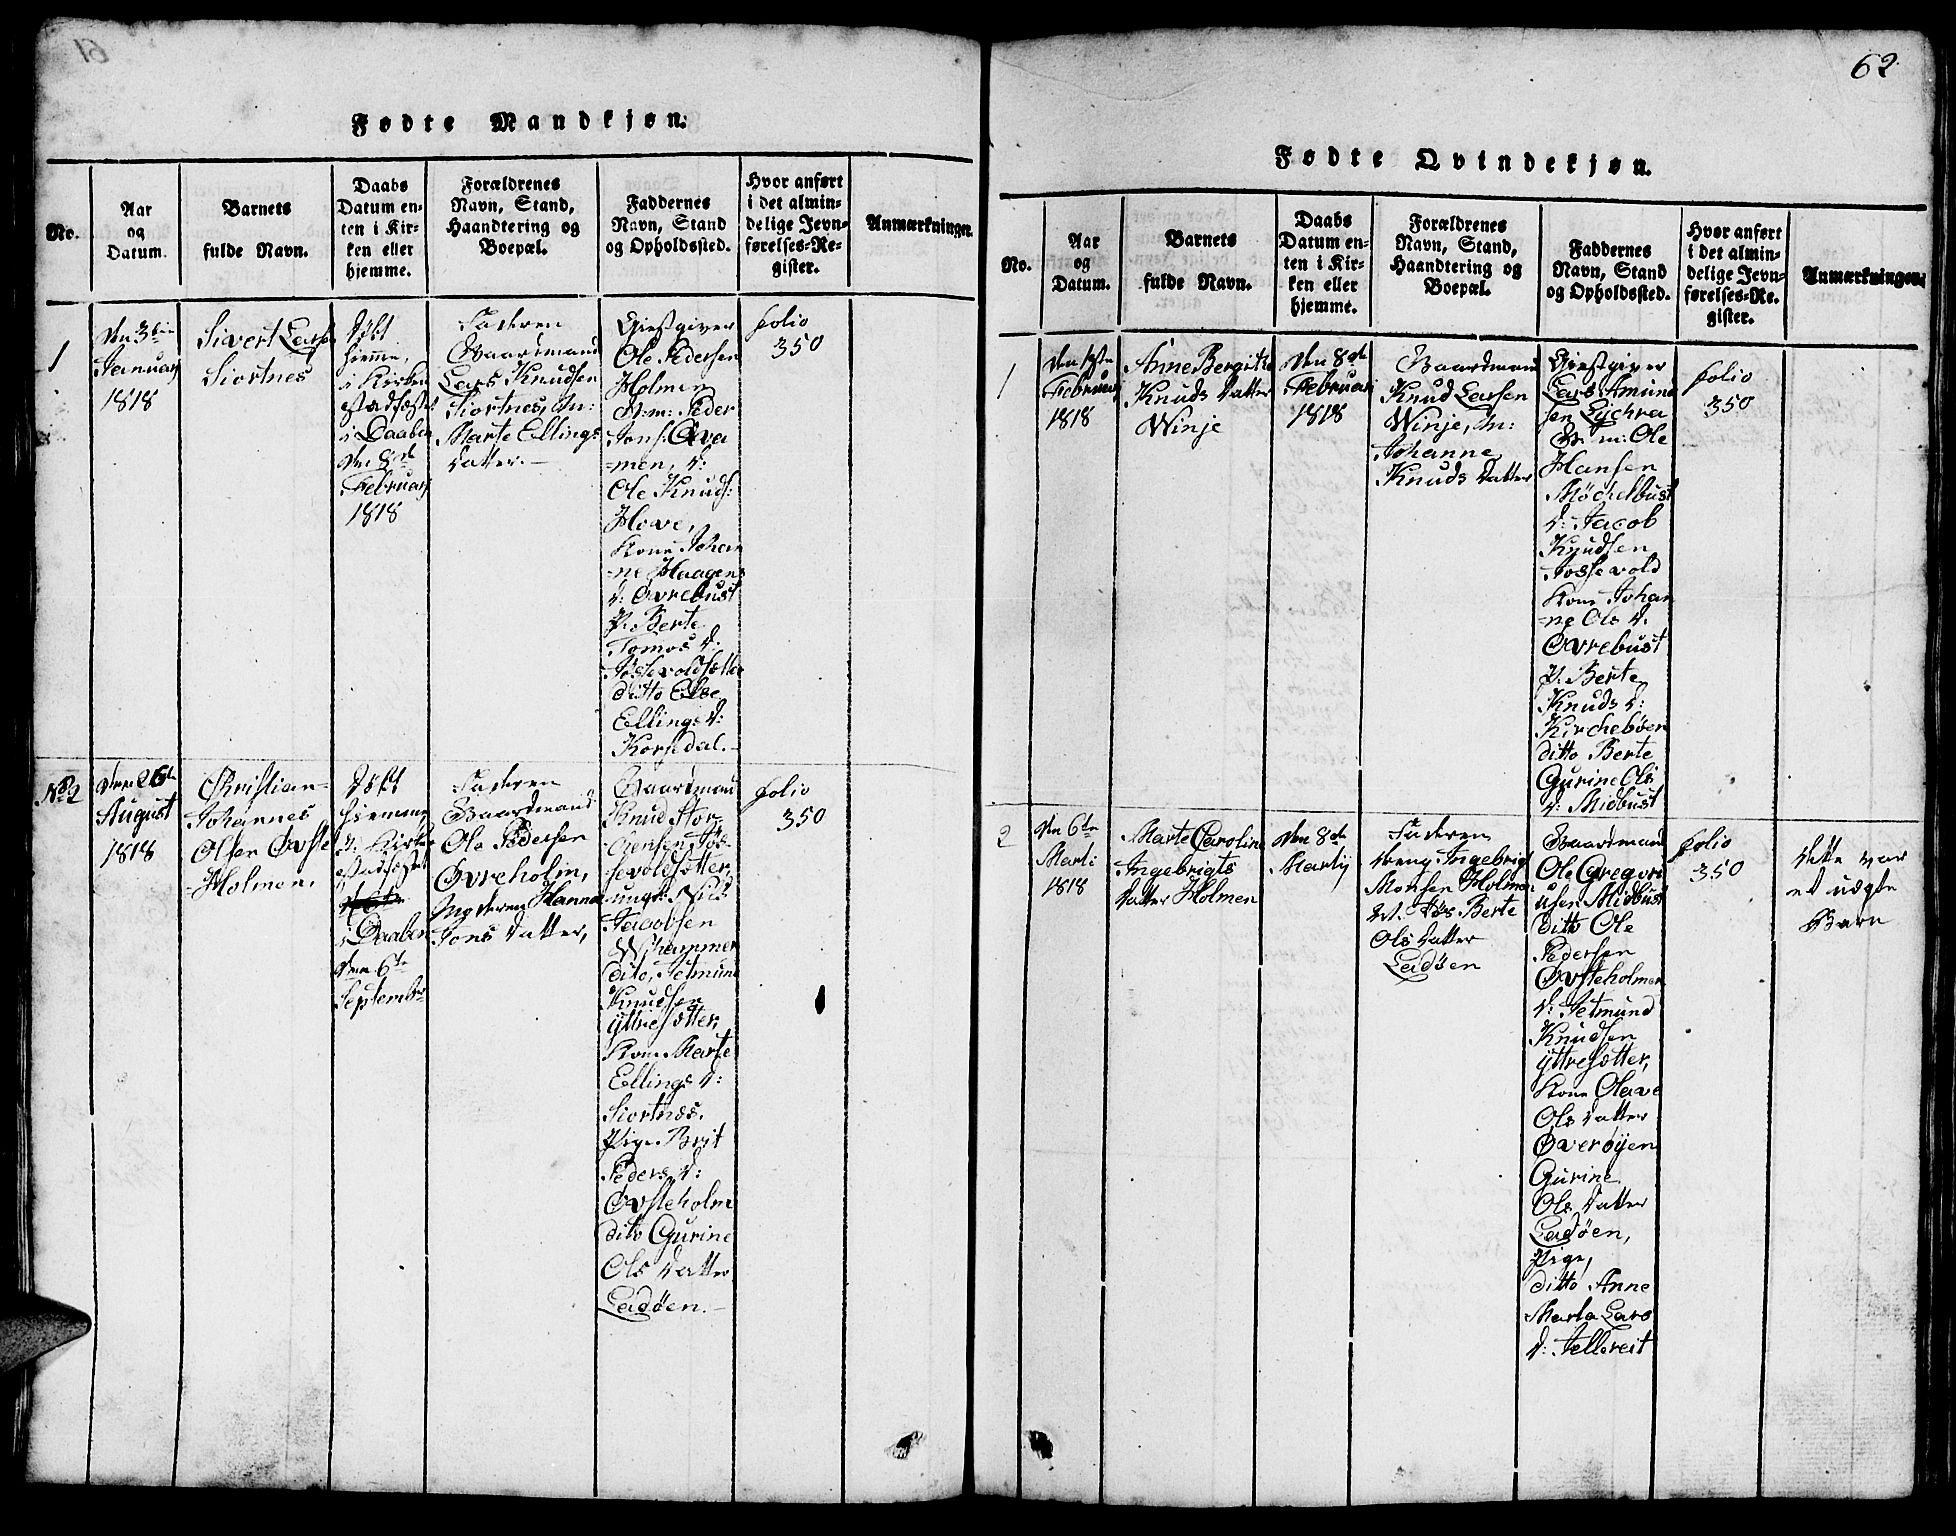 61
Fødte Mandkjøn.
No.
Aar
og
Datum.
Barnets
fulde Navn.
Daabs
Datum en-
ten i Kir-
ken eller
hjemme.
Forældrenes
Navn, Stand,
Haandtering og
Boepæl.
Faddernes
Navn, Stand
og Opholdssted.
Hvor anført
i det almin-
delige Jevn-
førelses-Re-
gister.
Anmærkninger.
1
den 3die
Januarj
1818
Sivert Lars
Siortnes
Døbt
hieme,
i Kirken
stadfæstet
i Daaben
den 8de
Februarj
1818
Faderen
Gaardmand
Lars Knudsen
Siortnes, M:
Marte Ellings
Datter.-
Giestgiver
Ole Pedersen
Holmen
Gm: Peder
Jons: Øva
=men, d:
Ole Knuds:
Hove,
Kone Johan
=ne Haagens
d: Øvrebust
P. Berte
Tomos d.
ditto Else
Ellings d:
Korsdal.-
folio
350
No 2
den 26de
August
1818
Christian-
Johannes
Olsen Øvste
Holmen.
Døbt
hiemme,
i Kirken
stadfæstet
i Daaben
den 6te
Septembr
Faderen
Gaardmand
Ole Pedersen
Øvreholm,
Moderen Hanna
Jons Datter,
Gaardmand
Knud Stor-
chensen Jos-
sevoldsætter,
ungk: Nils
Jacobsen
dito, Jetmund
Knudsen
yttresætter,
Kone Marte
Ellings d:
Siortnes.
Pige Brit
Peders d:
Øvsteholm
dito Gurine
Ols Datter
Ladøen.-
folio
350
62.
Fødte Qvindekjøn.
No.
Aar
og
Datum.
Barnets
fulde Navn.
Daabs
Datum en-
ten i Kir-
ken eller
hjemme.
Forældrenes
Navn, Stand,
Haandtering og
Boepæl.
Faddernes
Navn, Stand
og Opholdssted.
Hvor anført
i det almin-
delige Jevn-
førelses-Re-
gister.
Anmærkninger.
1
den 1ste
Februarj
1818
Anne Bergithe
Knuds Datter
Winje
den 8de
Februarj
1818
Gaardmand
Knud Larsen
Winje, M:
Johanne
Knuds Datter
Giestgiver
Lars Amund
sen Lichra
G m: Ole
Hansen
Möchelbust
d: Jacob
Knudsen
Jossevold
Kone Johan
=ne Ols d.
Øvrebust
P. Berte
Knuds d:
Kirchebøen
ditto Berte
Gurine Ols
d: Midbust
folio
350
2
den 6te
Marti
1818
Marte Carolin
Ingebrigts
Datter Holmen
den 8de
Martij
Faderen
Dreng Ingebrigt
Monsen Holmen
M. Tøs Berte
Ols Datter
Ladøen
Gaardmand
Ole Gregori
usen Midbust
ditto Ole
Pedersen
Øvsteholmen
d: Jetmund
Knudsen
yttresætter,
Kone Olave
Ols Datter
Øverøyen
Gurine
Ols Datter
Ladøen,
Pige,
ditto Anne
Marta Lars
d: Jellsreit
folio
350
Dette var
et uægte
Barn